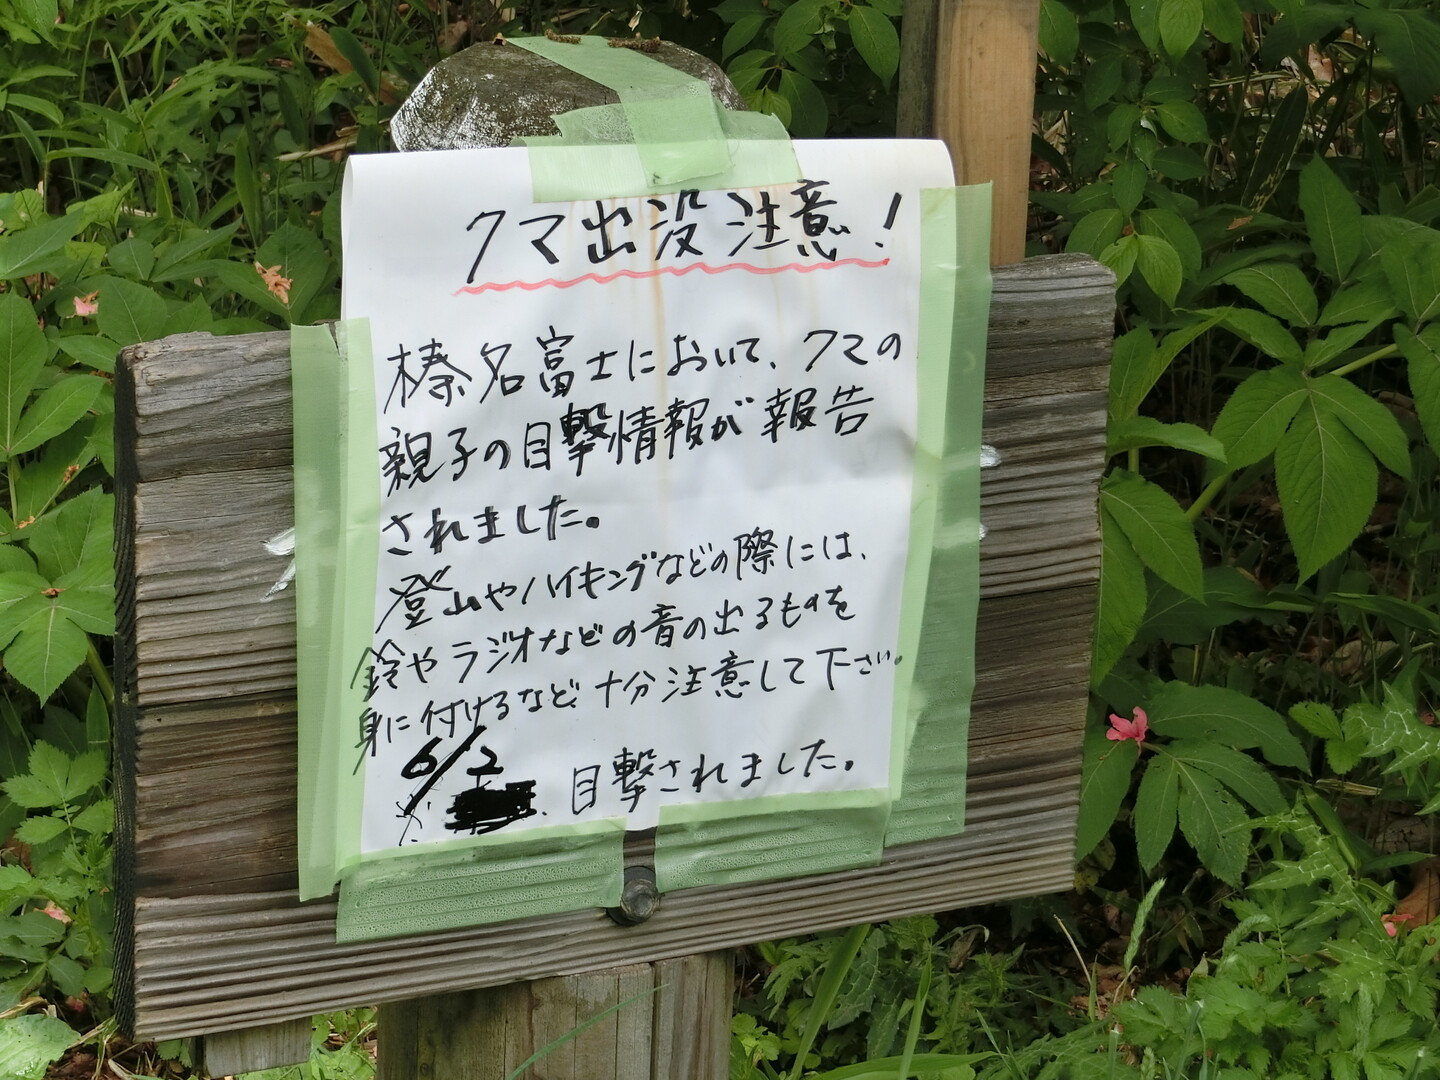 クマ出没注意!
榛名富士において、クマの
親子の目撃情報が報告
されました。
登山やハイキングなどの際には、
鈴やラジオなどの音の出るものを
身に付けるなど十分注意して下さい。
6/2
目撃されました。